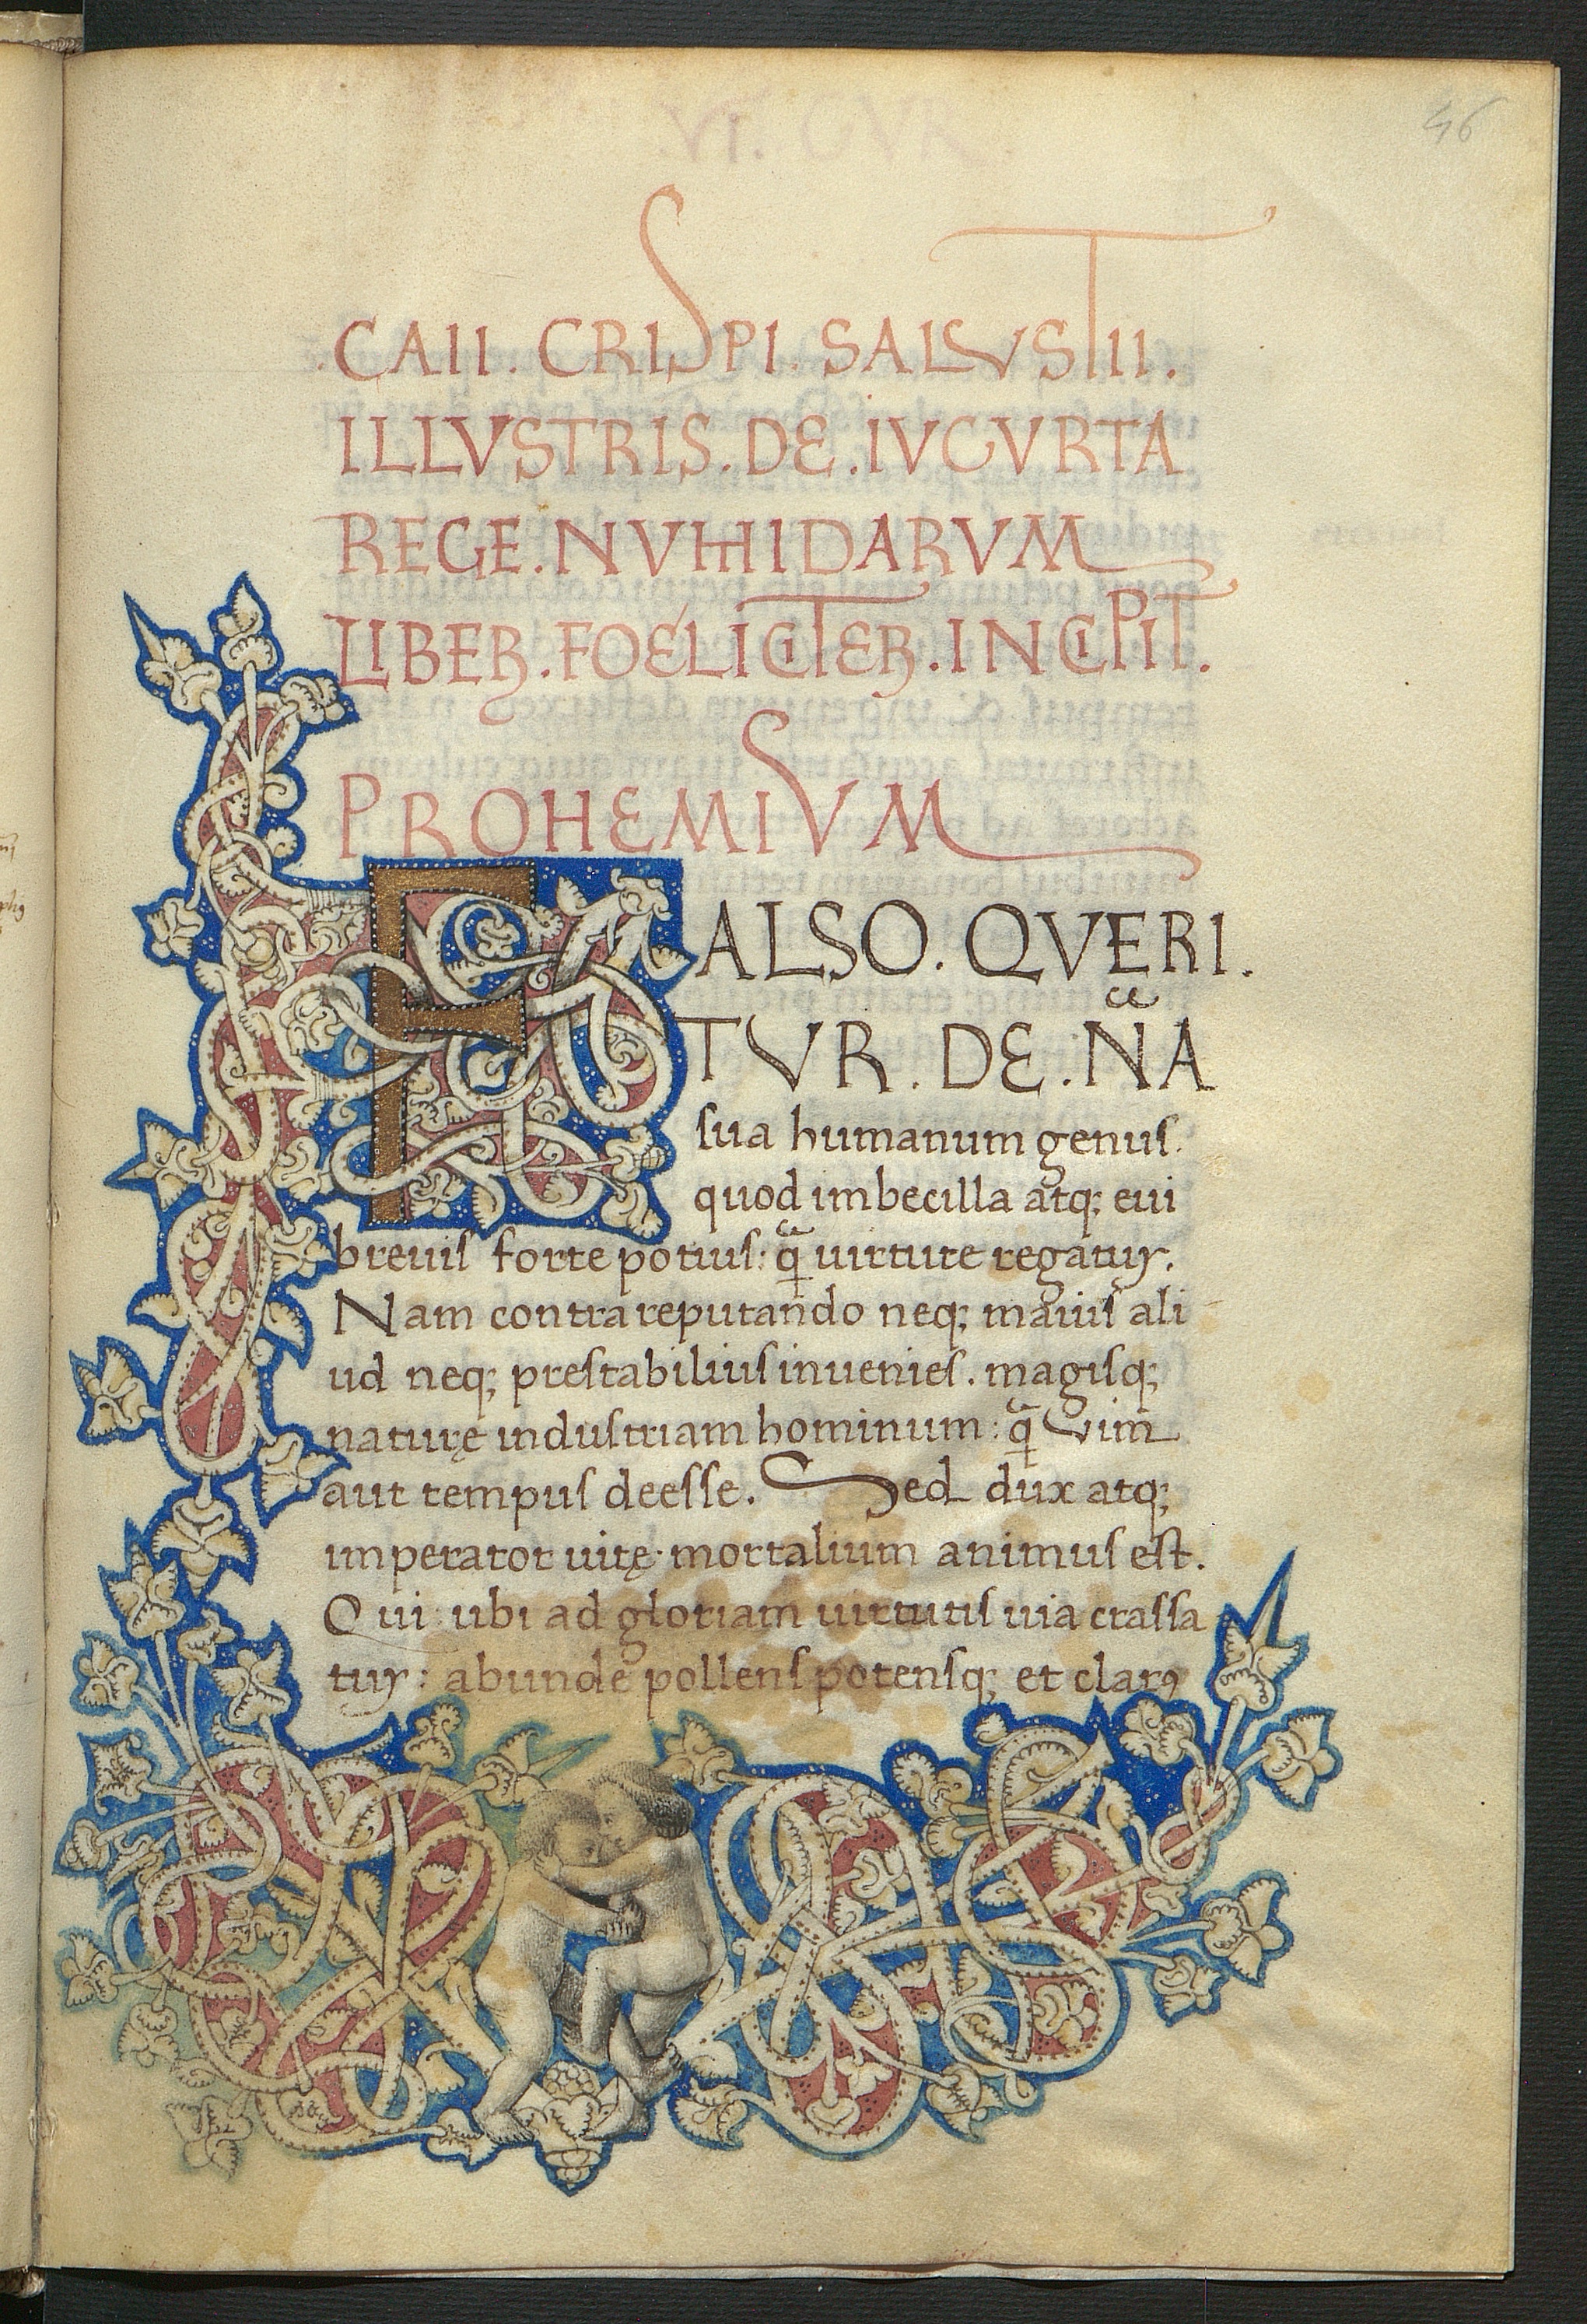 46
.CAII. CRISPI. SALVSTII.
ILLVSTRIS. DE. IVGVRTA
REGE. NVMIDARVM
LIBER. FOELICITER. INCIPIT.
PROHEMIVM
FALSO. QVERI.
TVR. DE. N̄A
sua humanum genus.
quod imbecilla atq; eui
breuis forte potius: q̄ uirtute regatur.
Nam contra reputando neq; maius ali
ud neq; prestabilius inuenies. magisq;
naturę industriam hominum: q̄ vim
aut tempus deesse. Sed dux atq;
imperator uitę mortalium animus est.
Qui ubi ad gloriam uirtutis uia crassa
tur: abunde pollens potensq; et clarꝰ